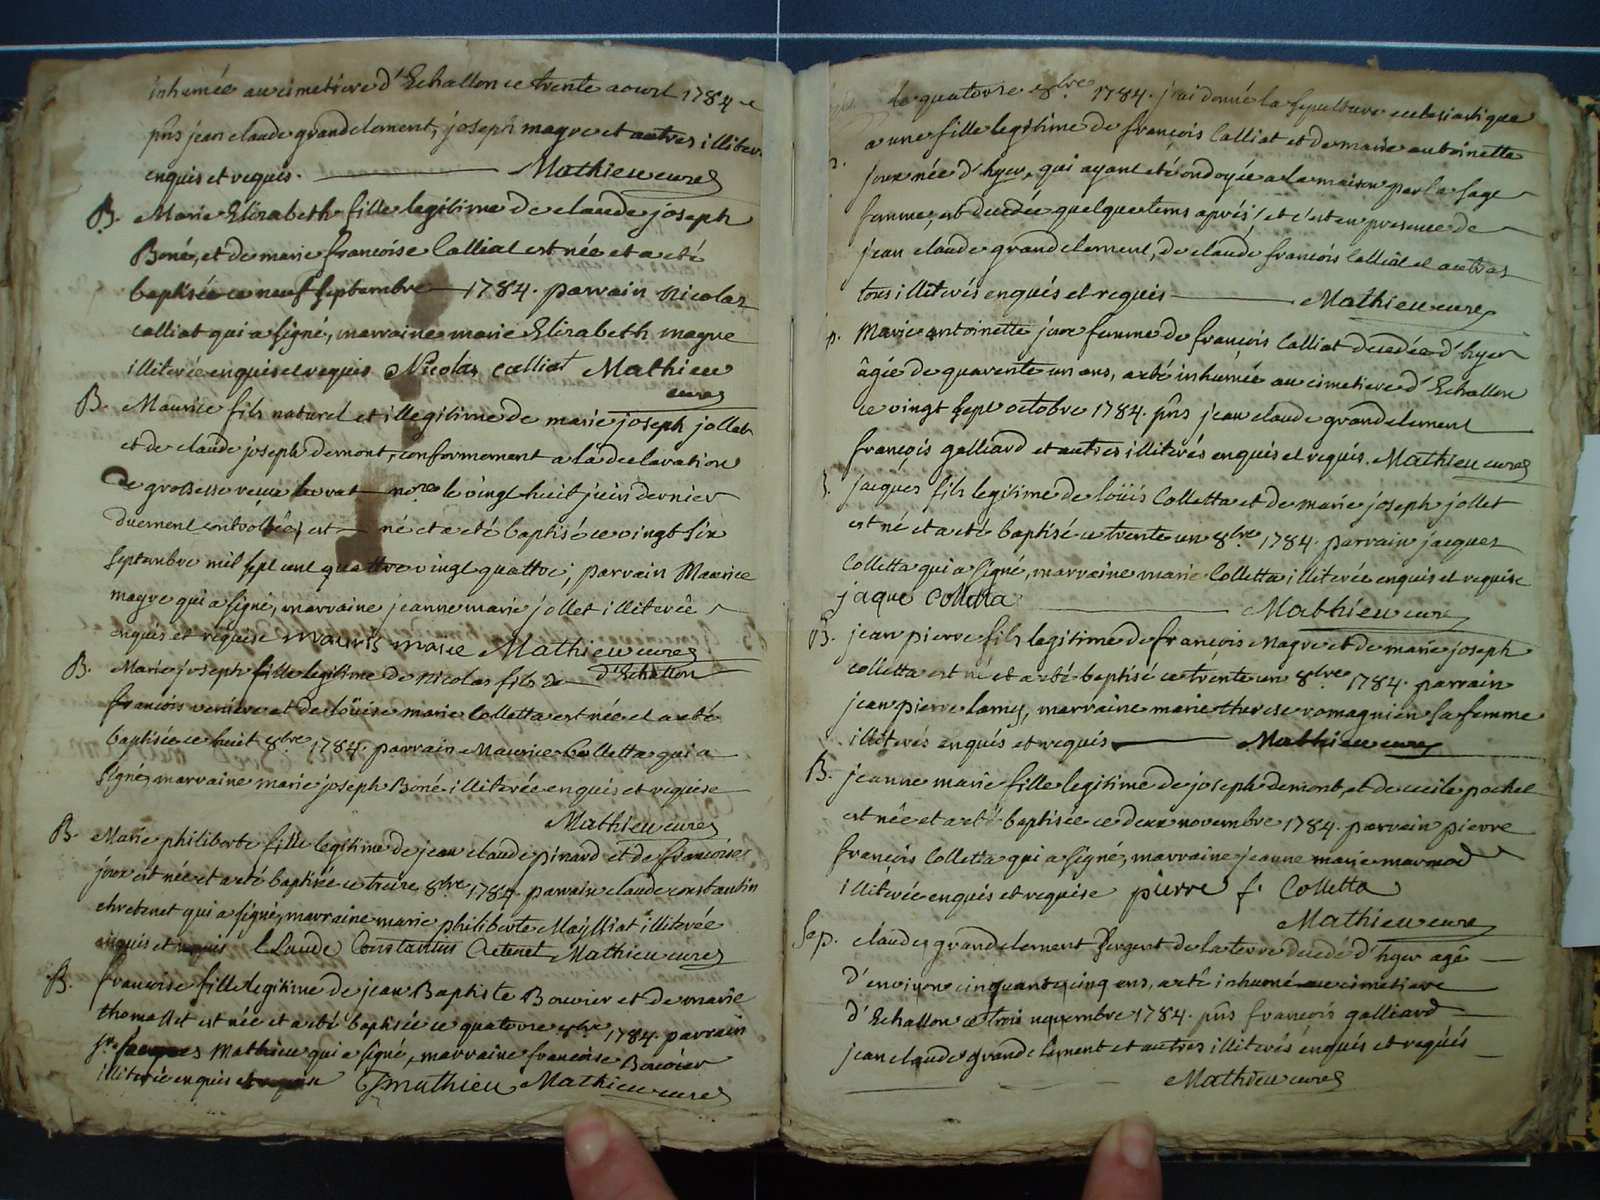 inhumée au cimetiere d'Echallon ce trente aoust 1784
pñs jean claude grandclement, joseph magre et autres illiter.
enquis et requis. Mathieu curé
B. Marie Elizabeth fille legitime de claude joseph
Boné, et de marie françoise Calliat est née et a eté
baptisée ce neuf septembre 1784. parrain Nicolas
calliat qui a signé, marraine marie Elizabeth magre
illiterée enquise et requis Nicolas calliat Mathieu
curé
B. Maurice fils naturel et illegitime de marie joseph jollet
et de claude joseph demont, conformement a la declaration
de grossesse reçue no.re le vingt huit juin dernier
duement contrôlée, est né et a eté baptisé ce vingt six
septembre mil sept cent quattre vingt quattre, parrain Maurice
magre qui a signé, marraine jeanne marie jollet illiterée
enquis et requise mauris Mathieu curé
d'Echallon
B. Marie joseph fille legitime de nicolas fils de
françois et de loüise marie Colletta est née et a eté
baptisée ce huit 8bre 1784. parrain Maurice Colletta qui a
signé, marraine marie joseph Boné illiterée enquis et requise
Mathieu curé
B. Marie philiberte fille legitime de jean claude pinard et de françoise
joux est née et a eté baptisée ce treize 8bre 1784. parrain claude constantin
chretenet qui a signé, marraine marie philiberte illiterée
enquis et requis Claude Constantin Mathieu curé
B. françoise fille legitime de jean Baptiste Bouvier et de marie
est née et a eté baptisée ce quatorze 8bre 1784. parrain
jacques Mathieu qui a signé, marraine françoise Bouvier
illiterée enquis et mathieu Mathieu curé
le quatorze 8bre 1784. j'ai donné la sepulture ecclesiastique
a une fille legitime de françois Calliat et de marie antoinette
joux née d'hyer, qui ayant eté ondoyée a la maison par la sage
femme, est decedée quelque tems aprés, et c'est en presence de
jean claude grandclement, de claude françois Calliat et autres
tous illiterés enqués et requis Mathieu curé
p. Marie antoinette joux femme de françois Calliat decedée d'hyer
âgée de quarente un ans, a eté inhumée au cimetiere d'Echallon
ce vingt sept octobre 1784. pñs jean claude grandclement
françois galliard et autres illiterés enquis et requis. Mathieu curé
jacques fils legitime de loüis Colletta et de marie joseph jollet
est né et a eté baptisé ce trente un 8bre 1784. parrain jacques
Colletta qui a signé, marraine marie Colletta illiterée enquis et requise
jaque Colletta Mathieu curé
B. jean pierre fils legitime de françois Magre et de marie joseph
colletta est né et a eté baptisé ce trente un 8bre 1784. parrain
jean pierre lamy, marraine marie therese romagnien sa femme
illiterés enqués et requis Mathieu curé
B. jeanne marie fille legitime de joseph demont, et de cecile pochet
est née et a eté baptisée ce deux novembre 1784. parrain pierre
françois Colletta qui a signé, marraine jeanne marie marmod
illiterée enquis et requise pierre f. Colletta
Mathieu curé
Sep. claude grandclement sergent de la terre decedé d'hyer agé
d'environ cinquante cinq ans, a eté inhumé au cimetiere
d'Echallon ce trois novembre 1784. pñs françois galliard
jean claude grandclement et autres illiterés enquis et requis
Mathieu curé